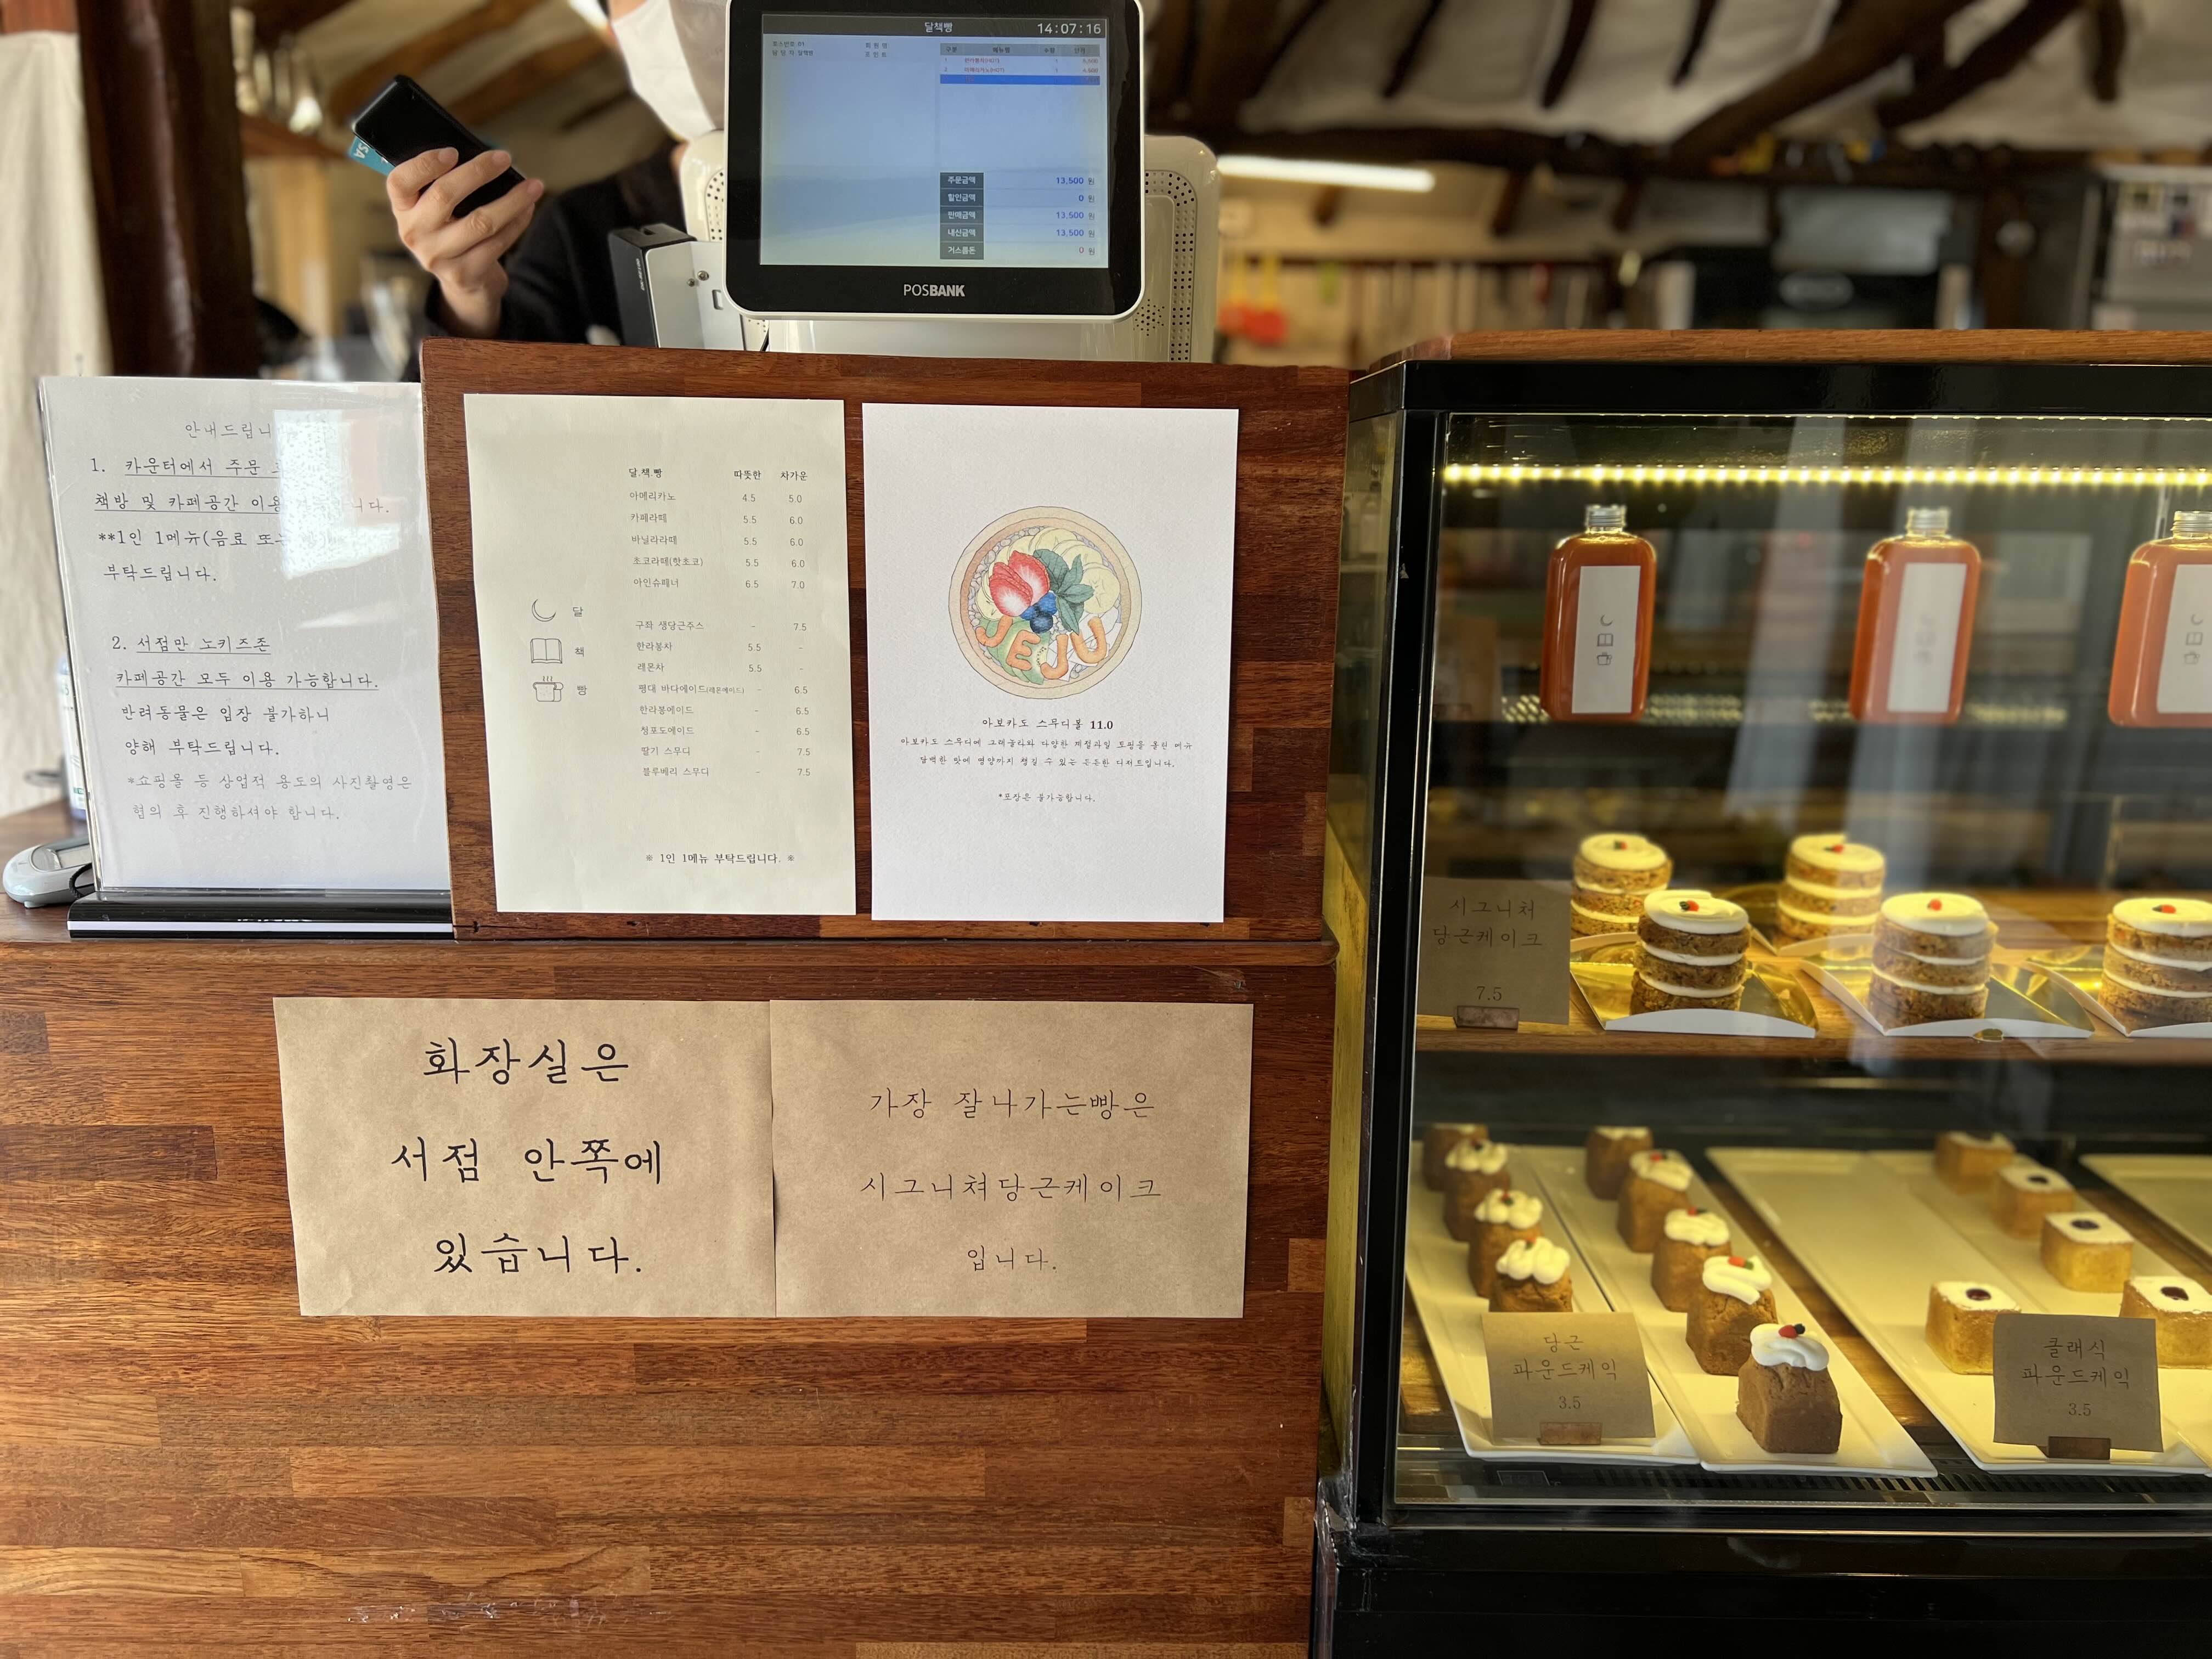 달책빵 14:07:16
포스번호:01 회 원 명:
담 당 자:달책빵 포 인 트:
구분 메뉴명 수량 단가
1 한라봉차(HOT) 1
2 아메리카노(HOT) 1
주문금액 13,500 원
할인금액 0 원
판매금액 13,500 원
내신금액 13,500 원
거스름돈 0 원
POSBANK
안내드립니
1. 카운터에서 주문
책방 및 카페공간 이용 니다.
**1인 1메뉴(음료 또는
부탁드립니다.
2. 서점만 노키즈존
카페공간 모두 이용 가능합니다.
반려동물은 입장 불가하니
양해 부탁드립니다.
*쇼핑몰 등 상업적 용도의 사진촬영은
협의 후 진행하셔야 합니다.
달
책
빵
달.책.빵 따뜻한 차가운
아메리카노 4.5 5.0
카페라떼 5.5 6.0
바닐라라떼 5.5 6.0
초코라떼(핫초코) 5.5 6.0
아인슈페너 6.5 7.0
구좌 생당근주스 - 7.5
한라봉차 5.5 -
레몬차 5.5 -
평대 바다에이드(레몬에이드) - 6.5
한라봉에이드 - 6.5
청포도에이드 - 6.5
딸기 스무디 - 7.5
블루베리 스무디 - 7.5
※ 1인 1메뉴 부탁드립니다. ※
JEJU
아보카도 스무디볼 11.0
아보카도 스무디에 그래놀라와 다양한 제철과일 토핑을 올린 메뉴
담백한 맛에 영양까지 챙길 수 있는 든든한 디저트입니다.
*포장은 불가능합니다.
화장실은
서점 안쪽에
있습니다.
가장 잘나가는빵은
시그니쳐당근케이크
입니다.
시그니쳐
당근케이크
7.5
당근
파운드케익
3.5
클래식
파운드케익
3.5